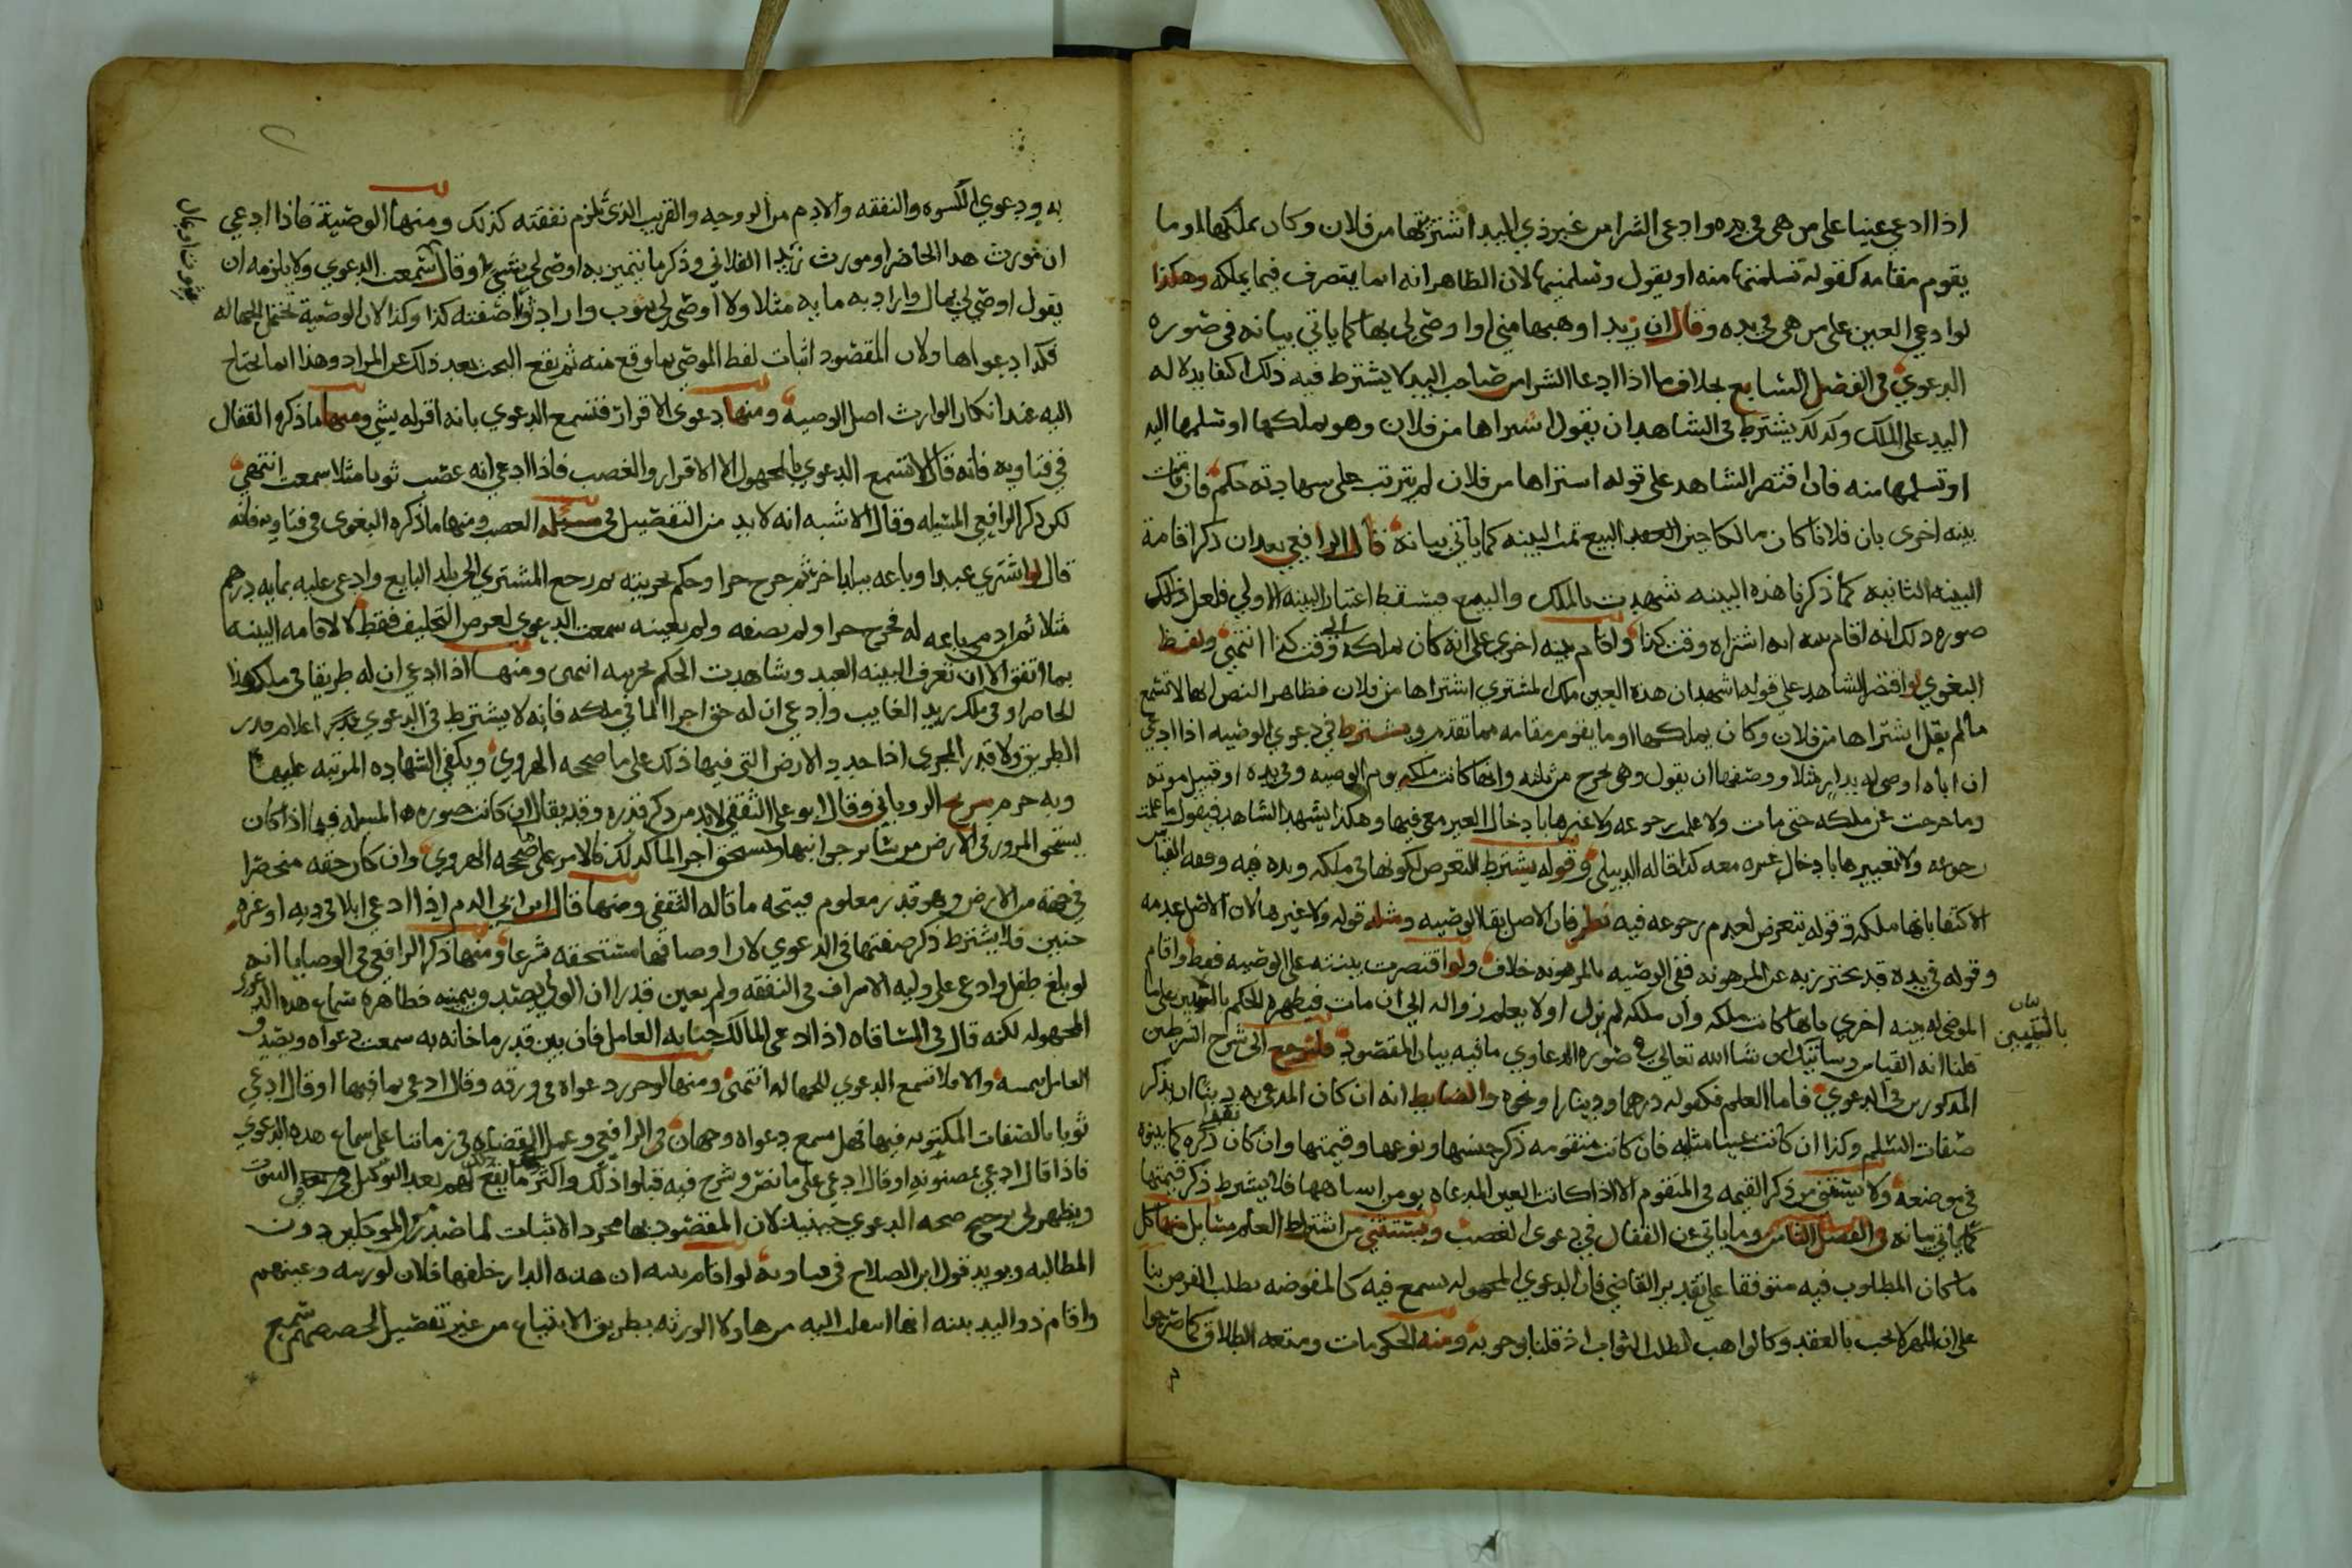 اذا ادعى عينا على من هي في يده وادعى الشرا من غير ذي اليد اشتريتها من فلان وكان يملكها او ما
يقوم مقامه كقوله تسلمتها منه او يقول وسلمنيها لان الظاهر انه انما يتصرف فيما يملكه وهكذا
لو ادعى العين على من هي في يده وقال ان زيدا وهبها مني او اوصى لي بها كما ياتي بيانه في صوره
الدعوي في الفصل السابع بخلاف ما اذا ادعا الشرا من صاحب اليد لا يشترط فيه ذلك اكتفا بدلاله
اليد على الملك وكذلك يشترط في الشاهد ان يقول اشتراها من فلان وهو يملكها او تسلمها اليه
او تسلمها منه فان اقتصر الشاهد على قوله اشتراها من فلان لم يترتب على شهادته حكم فان قامت
بينه اخرى بان فلانا كان مالكا حين البيع تمت البينه كما ياتي بيانه قال الرافعي بعد ان ذكر اقامة
البينه الثانيه كما ذكرنا هذه البينه شهدت بالملك والبيع فسقط اعتبار البينه الاولي فلعل ذلك
صوره ذلك انه اقام بينه انه اشتراه وقت كذا واقام بينه اخرى على انه كان يملكه الى وقت كذا انتهي ولفظ
البغوي لو اقتصر الشاهد على قوله اشهد ان هذه العين ملك لمشتري اشتراها من فلان فظاهر النص انها لا تسمع
ما لم يقل اشتراها من فلان وكان يملكها او ما يقوم مقامه مما تقدم ويشترط في دعوي الوصيه اذا ادعي
ان اباه اوصى له بدار مثلا ووصفها ان يقول وهي تخرج من ثلثه وانها كانت ملكه يوم الوصيه وفي يده او قبيل موته
وما خرجت عن ملكه حتى مات ولا علم رجوعه ولا غيرها بادخال الغير معي فيها وهكذا يشهد الشاهد فيقول ما علمت
رجوعه ولا تغييرها بادخال غيره معه كذا قاله الدبيلي وقوله يشترط التعرض لكونها في ملكه ويده فيه وقفه القياس
الاكتفا بانها ملكه وقوله يتعرض لعدم رجوعه فيه نظر فان الاصل بقا الوصيه ومثله قوله ولا غيرها لان الاصل عدمه
وقوله في يده قد يحترز به عن المرهونه ففي الوصيه بالمرهونه خلاف ولو اقتصرت بينته على الوصيه فقط واقام
الموصي له بينه اخري بانها كانت ملكه وان ملكه لم يزل او لا يعلم زواله الى ان مات فيظهر الحكم بالبينتين على ما
بيان
بالبينتين
قلنا انه القياس وسياتيك ان شا الله تعالى في صوره الدعاوي ما فيه بيان المقصود فلنرجع الى شرح الشرطين
المذكورين في الدعوي فاما العلم فكقوله درهما ودينارا ونحوه والضابط انه ان كان المدعى به دينا ان يذكر
صفات السلم وكذا ان كانت عينا مثليه فان كانت متقومه ذكر جنسها ونوعها وقيمتها وان كان ذكره كما بينوه
في موضعه ولا يستغنى من ذكر القيمه في المتقوم الا اذا كانت العين المدعاه يومي اليها فلا يشترط ذكر قيمتها
كما ياتي بيانه في الفصل الثامن وما ياتي عن القفال في دعوى الغصب ويستثني من اشتراط العلم مسايل منها كل
ما كان المطلوب فيه متوقفا على تقدير القاضي فان الدعوي المجهوله تسمع فيه كالمفوضه بطلب الفرض بنا
على ان المهر لا يجب بالعقد وكالواهب لطلب الثواب اذ قلنا بوجوبه ومنه الحكومات ومتعه الطلاق كما صرحوا
به ودعوي الكسوه والنفقه والادم من الزوجيه والقريب الذي تلزم نفقته كذلك ومنها الوصية فاذا ادعي
ان مورث هذا الحاضر او مورث زيد الفلاني وذكر ما يتميز به اوصى لي بشي او قال سمعت الدعوي ولا يلزمه ان
يقول اوصي لي بمال واراد به مايه مثلا ولا اوصى لي بثوب واراد ثوبا صفته كذا وكذا لان الوصية تحتمل الجهاله
فكذا دعواها ولان المقصود اثبات لفظ الموصي بما وقع منه ثم يقع البحث بعد ذلك عن المراد وهذا انما يحتاج
اليه عند انكار الوارث اصل الوصيه ومنها دعوى الاقرار فتسمع الدعوي بانه اقر له بشي ومنها ما ذكره القفال
في فتاويه فانه قال لا تسمع الدعوي بالمجهول الا الاقرار والغصب فاذا ادعي انه غصب ثوبا مثلا سمعت انتهي
لكن ذكر الرافعي المسئله وقال الاشبه انه لا بد من التفصيل في مسئله الغصب ومنها ما ذكره البغوي في فتاويه فانه
قال لو اشتري عبدا وباعه ببلد اخر ثم خرج حرا وحكم بحريته ثم رجع المشتري الى بلد البايع وادعى عليه بمايه درهم
مثلا ثمن ادمي باعه له فخرج حرا ولم يصفه ولم يعينه سمعت الدعوي لغرض التحليف فقط لا لاقامه البينه
بما اتفق الا ان تعرف البينه العبد وشاهدت الحكم بحريته انتهى ومنها اذا ادعي ان له طريقا في ملك هذا
الحاضر او في ملك زيد الغايب وادعي ان له حق اجرا الما في ملكه فانه لا يشترط في الدعوي اعلام قدر
الطريق ولا قدر المجري اذا حدد الارض التي فيها ذلك على ما صححه الهروي ويكفي الشهاده المرتبه عليها
وبه جزم شريح الروياني وقال ابو علي الثقفي لا بد من ذكر قدره وقد يقال ان كانت صوره المسله فيما اذا كان
يستحق المرور في الارض من سائر جوانبها ويستحق اجرا الما كذلك فالامر على ما صححه الهروي وان كان حقه منحصرا
في جهة من الارض وهو قدر معلوم فيتجه ما قاله الثقفي ومنها قال ابن ابي الدم اذا ادعي ابلا في ديه او غره
جنين فلا يشترط ذكر صفتها في الدعوي لان اوصافها مستحقه شرعا ومنها ذكر الرافعي في الوصايا انه
لو بلغ طفل وادعى على وليه الاسراف في النفقه ولم يعين قدرا ان الولي يصدق بيمينه فظاهره سماع هذه الدعوى
المجهوله لكنه قال في المساقاه اذا ادعى المالك خيانه العامل فان بين قدر ما خانه به سمعت دعواه ويصدق
العامل بيمينه والا فلا تسمع الدعوي للجهاله انتهى ومنها لو حرر دعواه في ورقه وقال ادعي بما فيها او قال ادعي
ثوبا بالصفات المكتوبه فيها فهل تسمع دعواه وجهان في الرافعي وعمل القضاه في زماننا على سماع هذه الدعوي
فاذا قال ادعي بمضمونه او قال ادعي على ما نص وشرح فيه قبلوا ذلك واكثر ما يقع لهم بعد التوكيل في الثبوت
ويظهر لي ترجيح صحه الدعوي حينئذ لان المقصود بها مجرد الاثبات لما صدر من الموكلين دون
المطالبه ويويد قول ابن الصلاح في فتاويه لو اقام بينه ان هذه الدار خلفها فلان لورثته وعينهم
واقام ذو اليد بينه انها انتقلت اليه من هاولا الورثه بطريق الابتياع من غير تفصيل لحصصهم تسمع